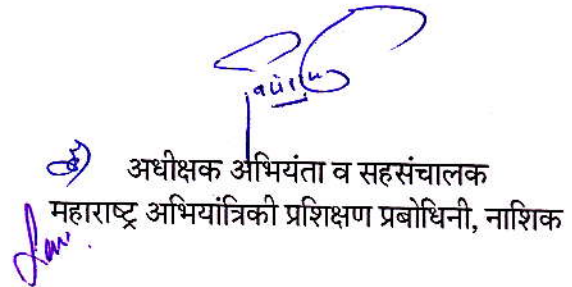 अधीक्षक अभियंता व सहसंचालक
महाराष्ट्र अभियांत्रिकी प्रशिक्षण प्रबोधिनी, नाशिक